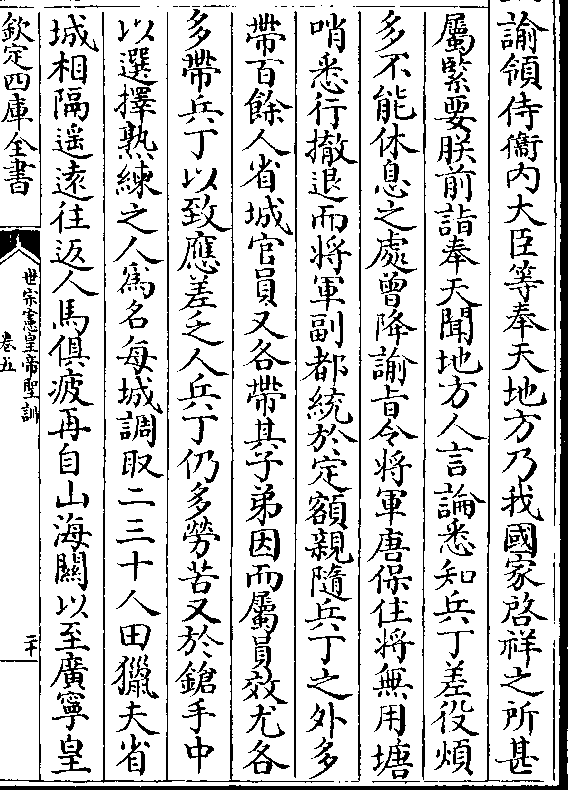 諭領侍衞内大臣等奉天地方乃我國家啓祥之所甚
屬緊要朕前詣奉天聞地方人言論悉知兵丁差役煩
多不能休息之處曾降諭㫖令將軍唐保住將無用塘
哨悉行撤退而將軍副都統於定額親隨兵丁之外多
帶百餘人省城官員又各帶其子弟因而屬員效尤各
多帶兵丁以致應差乏人兵丁仍多勞苦又於鎗手中
以選擇熟練之人爲名每城調取二三十人田獵夫省
城相隔遥逺往返人馬俱疲再自山海關以至廣寧皇
欽定四庫全書
世宗憲皇帝聖訓
卷五
二十